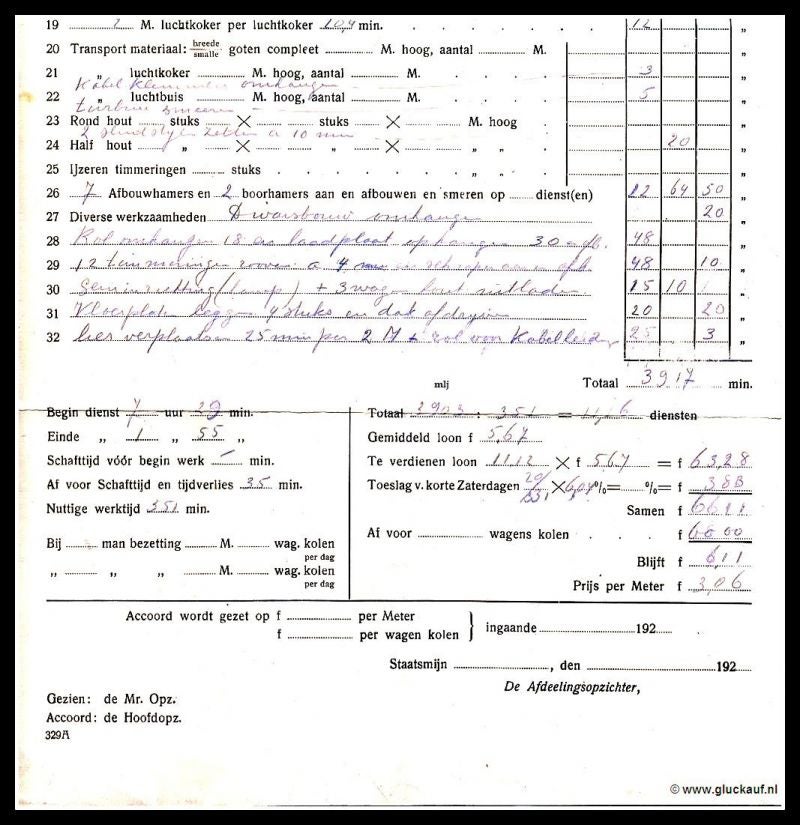 19 2 M. luchtkoker per luchtkoker 10,4 min. 12 „
20 Transport materiaal: breede smalle goten compleet M. hoog, aantal M. „
21 „ luchtkoker M. hoog, aantal M. 3 „
Kabel omhangen
22 „ luchtbuis M. hoog, aantal M. 5 „
smeeren
23 Rond hout stuks X stuks X M. hoog „
2 zetten a 10 min
24 Half hout „ X „ X „ „ 20 „
25 IJzeren timmeringen stuks „ „ „
26 7 Afbouwhamers en 2 boorhamers aan en afbouwen en smeren op dienst(en) 12 64 50 „
27 Diverse werkzaamheden Dwarsbouw omhangen 20 „
28 Rol omhangen 18 en laadplaat ophangen 30 48 „
29 12 timmeringen rooven a 4 min 48 10 „
30 (lamp) + 3 wagen hout uitladen 15 10 „
31 Vloerplaten leggen 4 stuks en dak afdragen 20 20 „
32 hier verplaatsen 25 min per 2 M + rol voor Kabelleiding 25 3 „
mlj Totaal 3917 min.
Begin dienst 7 uur 29 min.
Einde „ 1 „ 55 „
Schafttijd vóór begin werk – min.
Af voor Schafttijd en tijdverlies 35 min.
Nuttige werktijd 351 min.
Bij man bezetting M. wag. kolen per dag
„ „ „ M. wag. kolen per dag
Totaal 3903 : 351 = 11,16 diensten
Gemiddeld loon f 5,67
Te verdienen loon 11.12 X f 567 = f 63,28
Toeslag v. korte Zaterdagen X % = % = f 3,83
Samen f 6611
Af voor wagens kolen . . . f 6000
Blijft f 6,11
Prijs per Meter f 3,06
Accoord wordt gezet op f per Meter
f per wagen kolen } ingaande 192
Staatsmijn , den 192
De Afdeelingsopzichter,
Gezien: de Mr. Opz.
Accoord: de Hoofdopz.
329A
© www.gluckauf.nl